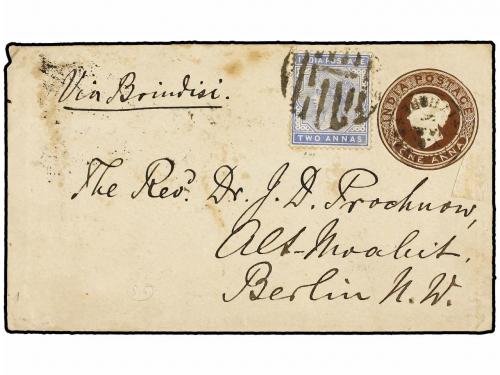 Via Brindisi.
INDIA POSTAGE
TWO ANNAS
INDIA POSTAGE
ONE ANNA
The Revd. Dr. J. D. Prochnow,
Alt-Moabit.
Berlin N.W.